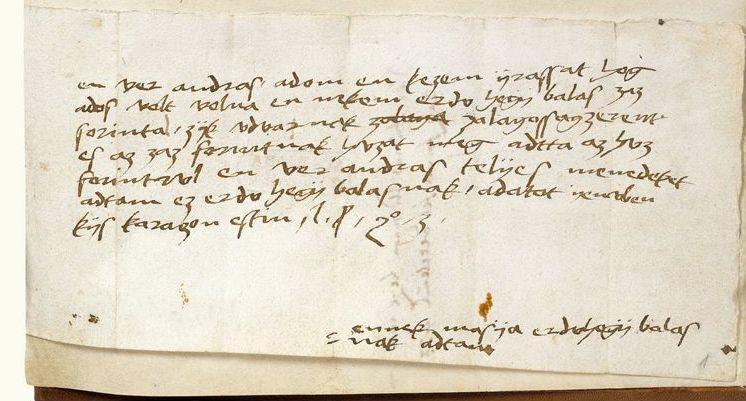 en ver andras adom en kezem ijrassat hog
ados volt volna en nekem erdo hegij balas zaz
forinta, zijk vdvarnak zalagossagzerent
es az zaz forintnak hvzat meg adtta az hvz
forintrol en ver andras teljes menedeket
adtam ez erdo hegij balasnak, adatot
kijs karazon estin
ennek masija erdohegij balas
nak adtam